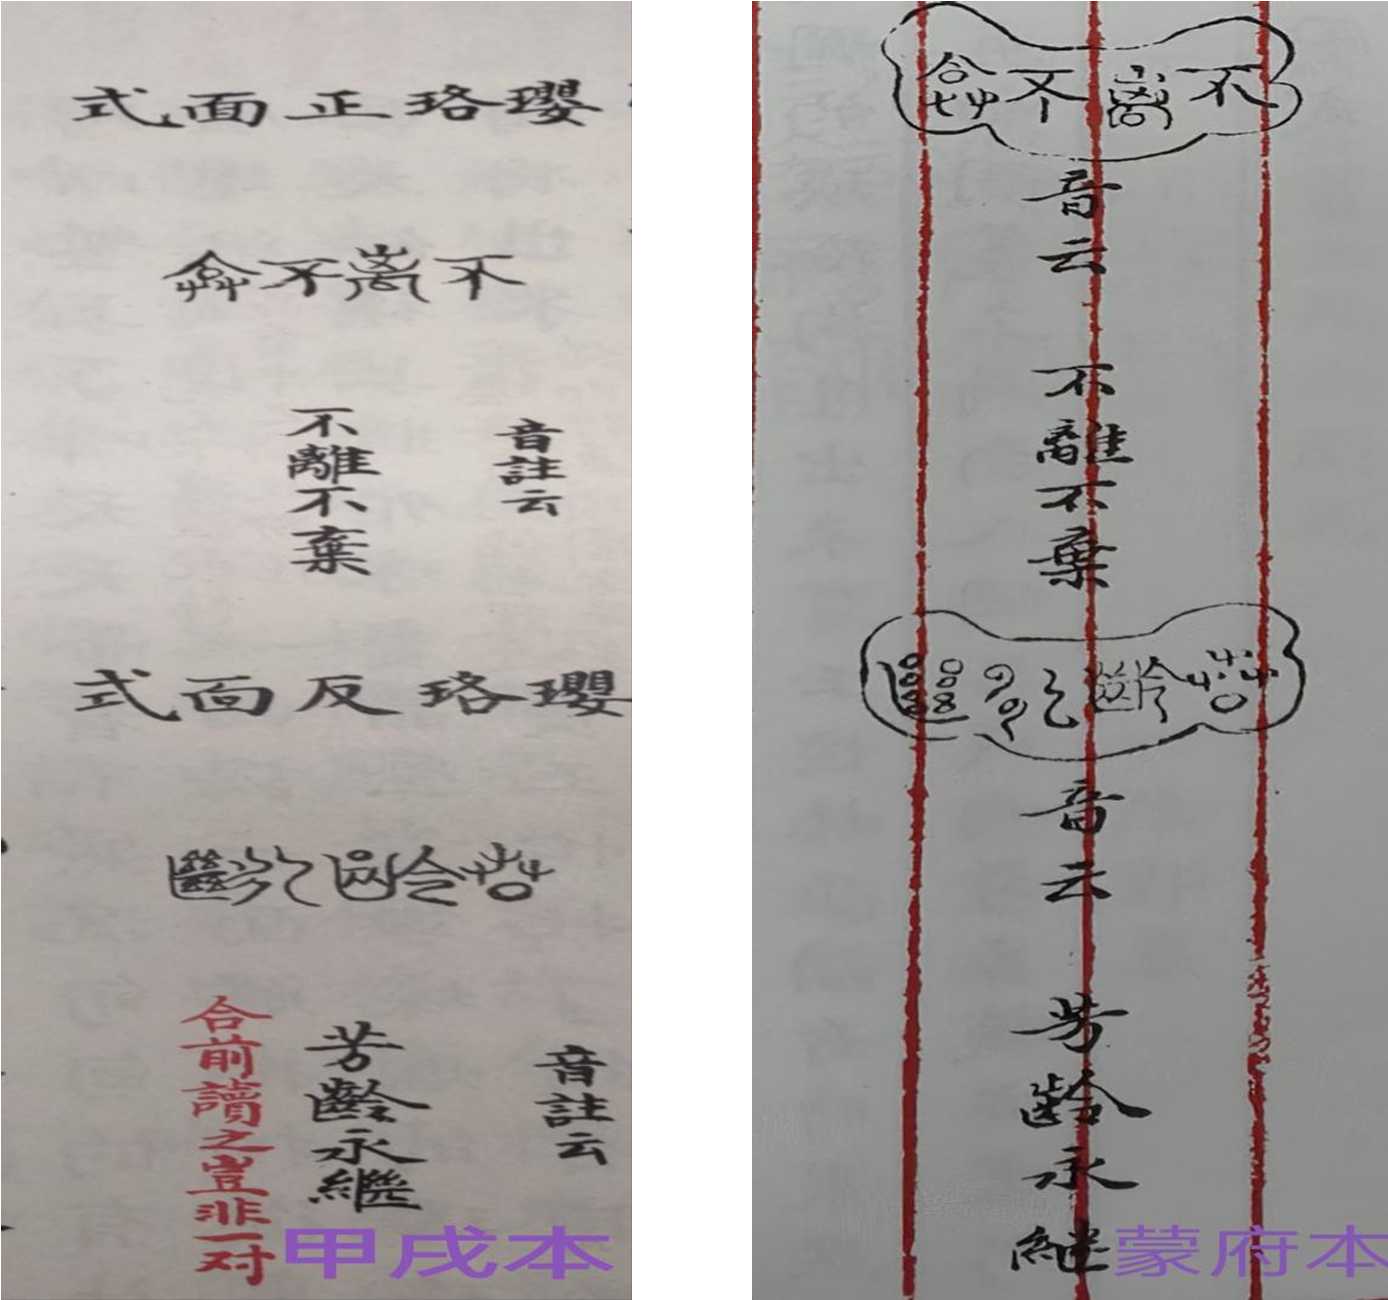 瓔珞正面式
不离不弃
音註云
不離不棄
瓔珞反面式
芳齡永繼
音註云
芳齡永繼
合前讀之豈非一对
甲戌本
不离不弃
音云
不離不棄
芳齡永繼
音云
芳齡永继
蒙府本